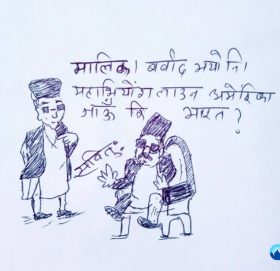 मालिक। बर्वाद भयो नि।
महाभियोग लाउन अमेरिका
जाऊँ कि भारत?